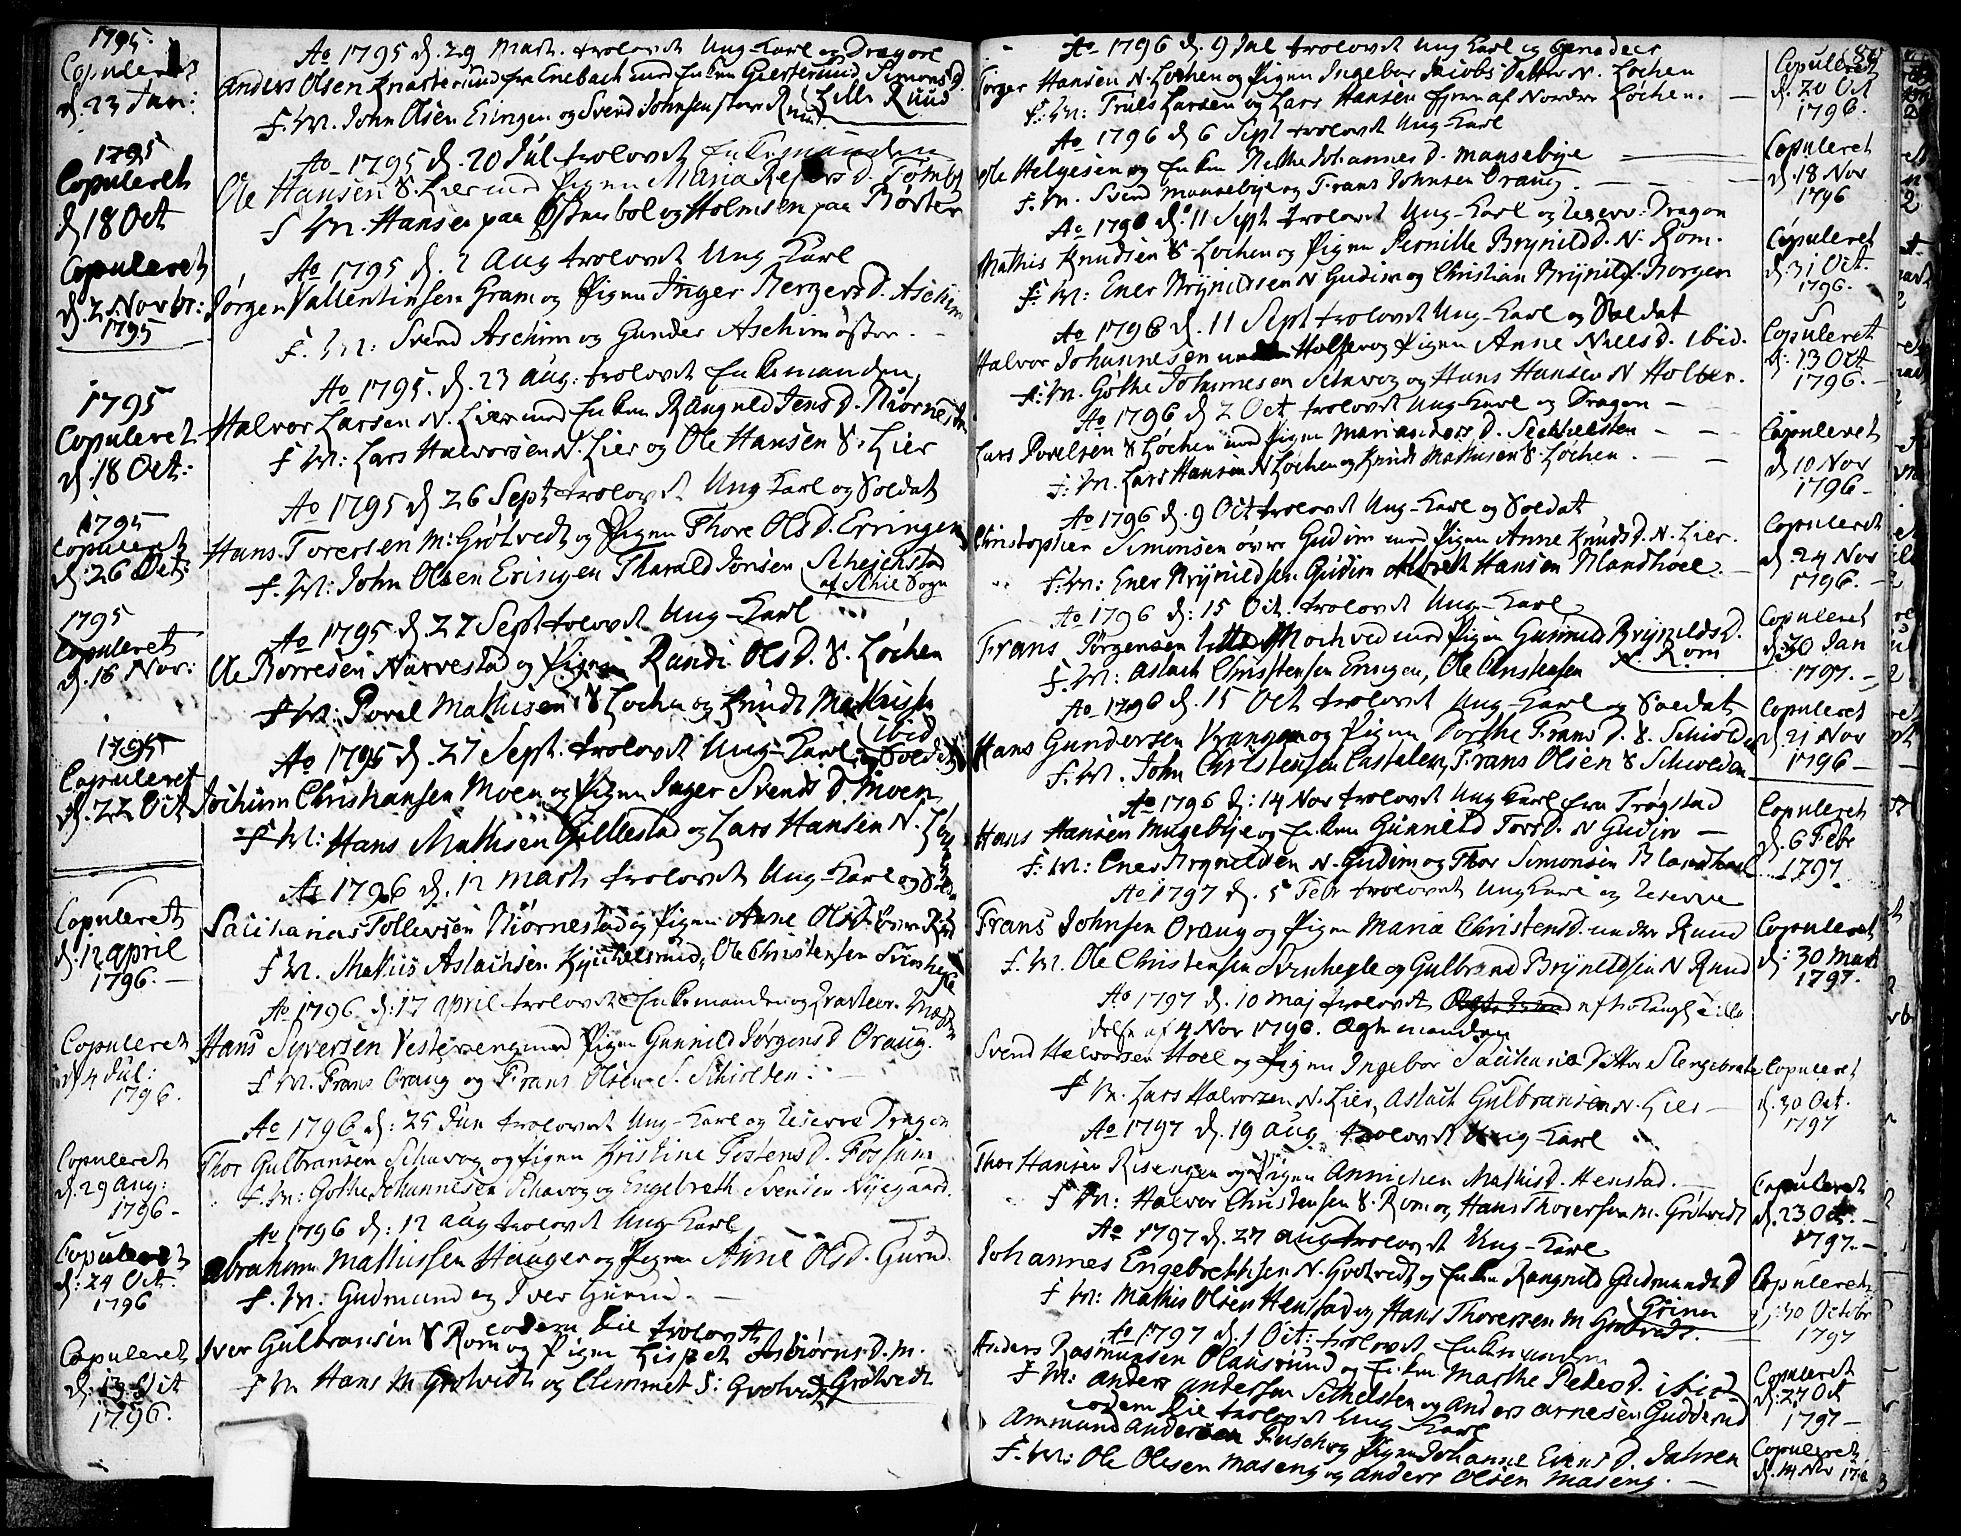 1795.
Copuleret
d. 23 Jan:
Ao 1795 d. 29 Mart. trolovet Ung-Karl og Dragon
Anders Olsen Knatterud fra Enebach med Enken Giertrud Simens D.
Lille Ruud
F. M. John Olsen Eringen og Svend Johnsen store Ruud
1795
Copuleret
d 18 Oct
Ao 1795 d. 20 Jul trolovet Enkemanden
Ole Hansen S. Lier med Pigen Maria D. Tomb
F M. Hansen paa og Holmsen paa
Copuleret
d. 2 Novbr:
1795
Ao 1795 d. 2 Aug trolovet Ung-Karl
Jørgen Vallentinsen Gram og Pigen Inger D. Aschim
F. M: Svend Aschim og Gunder Aschim østre.
1795
Copuleret
d. 18 Oct:
Ao 1795. d. 23 Aug: trolovet Enkemanden,
Halvor Larsen N. Lier med Enken Rangnild Jens D. Biørnestad
F M: Lars Halvorsen N. Lier og Ole Hansen S. Lier
1795
Copuleret
d. 26 Oct:
Ao 1795 d. 26 Sept trolovet Ung Karl og Soldat
Hans Toresen M: Grøtvedt og Pigen Thore Ols D. Erringen
F. M: John Olsen Eringen Tharald Jonsen
af Schie Sogn
1795
Copuleret
d. 16 Nov:
Ao 1795 d. 27 Sept trolovet Ung-Karl
Ole Borresen Narvestad og Pigen Randi Ols D. S. Lochen
F M: Povel Mathisen S Lochen og Knudt Mathisen
ibid
1795
Copuleret
d. 22 Oct
Ao 1795 d. 27 Sept. trolovet Ung-Karl og Soldat
Jochum Christiansen Moen og Pigen Inger Svends D. Moen
F M: Hans Mathisen Gillestad og Lars Hansen N.
Copuleret
d. 12 April
1796.
Ao 1796 d. 12 Marti trolovet Ung-Karl og
Sacharias Tollevsen Biørnestad og Pigen Anne Ols D.
F M. Mathis Aslachsen Kychelsrud, Ole Christensen Svinhegle
Copuleret
d 4 Jul:
1796.
Ao 1796 d: 17 April trolovet Enkemanden og
Hans Syversen Vestereng med Pigen Gunnild Jørgens D Oraug.
F M. Frans Oraug og Frans Olsen S. Schiolden.
Copuleret
d. 29 Aug:
1796 -
Ao 1796 d: 25 Jun trolovet Ung-Karl og Reserve Dragon
Thor Gulbransen Schavog og Pigen Kristine D. Fossum
F. M: Gothe Johannesen Schavog og Engebreth Svensen Nyegaard.
Copuleret
d: 24 Oct.
1796
Ao 1796 d: 12 Aug trolovet Ung Karl
Abraham Mathissen Hauger og Pigen Anne Ols D. Gurud.
F. M: Gudmund og Iver Gurud. -
Copuleret
d: 13 Oct
1796.
eodem Die trolovet
Iver Gulbransen S Rom og Pigen Lispet Asbiørns D. M.
Grøtvedt
F M Hans M Grøtvedt og Clemmet S: Grøtvedt
Ao 1796 d. 9 Jul trolovet Ung Karl og Genadeer
Torger Hansen N. Lochen og Pigen Ingebor Jacobs Datter N. Lochen
F: M: Truls Larsen og Lars Hansen af Nordre Lochen.
Copuleret
d. 20 Oct
1796.
Ao 1796 d 6 Sept trolovet Ung-Karl
Ole Helgesen og Enken Berthe Johannes D. Mansebye
F. M. Svend Mansebye og Frans Johnsen Oraug.
Copuleret
d. 18 Nov
1796
Ao 1796 d. 11 Sept trolovet Ung-Karl og Reserv: Dragon
Mathis Knudsen S. Lochen og Pigen Pernille Brynilds D. N. Rom.
F. M: Ener Brynildsen N Gudim og Christian Brynilds. Borgen
Copuleret
d. 31 Oct.
1796.
Ao 1796 d. 11 Sept trolovet Ung-Karl og Soldat
Halvor Johannesen og Pigen Anne Niels D. ibid.
F. M. Gothe Johannesen Schavog og Hans Hansen N Holter.
Copuleret
d: 13 Oct
1796. -
Ao 1796 d 2 Oct trolovet Ung-Karl og Dragon
Lars Povelsen S Lochen med Pigen Mari Anders D. Sethelsten
F: M. Lars Hansen N Lochen og Knudt Mathisen S. Lochen.
Copuleret
d 10 Nov
1796 -
Ao 1796 d. 9 Oct trolovet Ung-Karl og Soldat
Christopher Simonsen øvre Gudim med Pigen Anne Knuds D. N. Lier.
F. M: Ener Brynildsen Gudim Albrett Hansen Blandhoel
Copuleret
d. 24 Nov
1796. -
Ao 1796 d: 15 Oct. trolovet Ung-Karl
Frans Jørgensen lille Mochved med Pigen Gunnild Brynilds D.
N. Rom
F. M: Aslach Christensen Eringen, Ole Christensen
Copuleret
d: 30 Jan
1797. -
Ao 1796 d. 15 Oct trolovet Ung-Karl og Soldat
Hans Gundersen Krangen og Pigen Dorthe Frans D. S. Schiolden
F. M. John Christensen Castalen, Frans Olsen S Schiolden
Copuleret
d. 21 Nov
1796 -
Ao 1796 d: 14 Nov trolovet Ung Karl fra Trøgstad
Hans Hansen Mugebye og Enken Gunneld Tors D. N Gudim -
F: M: Ener Brynildsen N. Gudim og Thor Simonsen Blandhoel
Copuleret
d. 6 Febr
1797.
Ao 1797 d. 5 Febr trolovet Ung Karl og Reserve
Frans Johnsen Oraug og Pigen Maria Christens D. nedre Ruud
F. M. Ole Christensen Svinhegle og Gulbrand Brynildsen N Ruud
Copuleret
d: 30 Mart
1797.
Ao 1797 d. 10 Maj trolovet efter Kongl. Tilla
delse af 4 Nov 1796. Ægtemanden
Svend Halvorsen Hoel og Pigen Ingebor Sacharia Datter Slengebrate
F M. Lars Halvorsen N. Lier, Aslach Gulbransen N. Lier -
Copuleret
d. 30 Oct.
1797
Ao 1797 d. 19 Aug. trolovet Ung-Karl
Thor Hansen Risengen og Pigen Annichen Mathis D. Henstad. -
F M: Halvor Christensen S. Rom og Hans Thoresen M. Grøtvedt
Copuleret
d. 23 Oct. -
1797. -
Ao 1797 d. 27 Aug trolovet Ung-Karl
Johannes Engebrethsen N. Grøtvedt og Enken Rangnild Gudmunds D
Griner
F M: Mathis Olsen Henstad og Hans Thoresen M Grøtvedt.
Copuleret
d: 30 Octobr
1797
Ao 1797 d. 1 Oct: trolovet Enkemanden
Anders Rasmussen Olausrud og Enken Marthe Peders D. ibid
F M: Anders Andersen Sethelsten og Anders Arnesen Gudderud
Copuleret
d. 27 Oct
1797 -
eodem Die trolovet Ung Karl
Ammund Andersen og Pigen Johanne Einers D. Jahren
F. M: Ole Olesen Maseng og Anders Olsen Maseng. -
Copuleret
d. 14 Nov